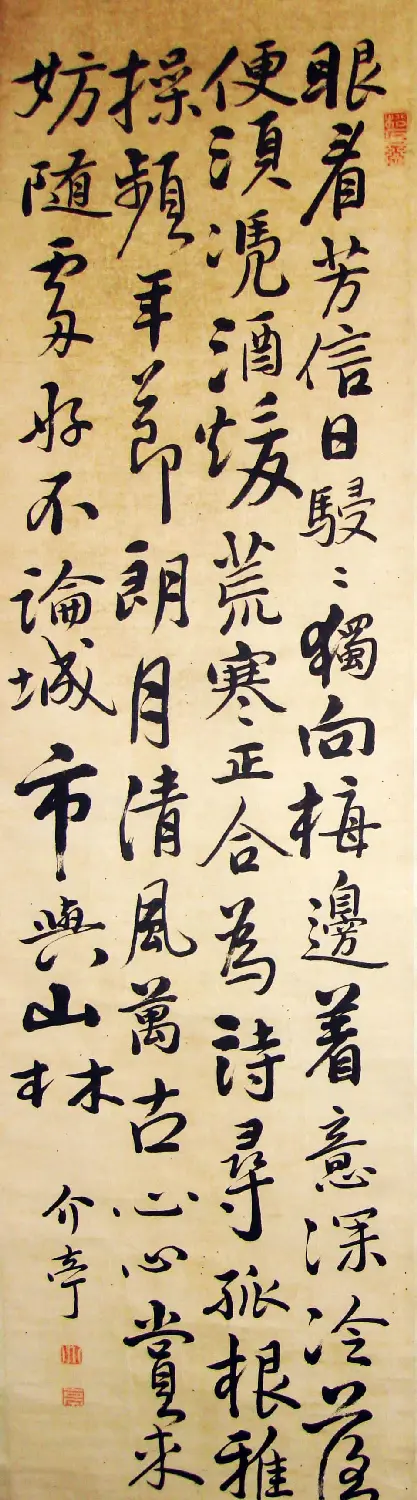 眼看芳信日駸〻獨向梅邊着意深冷落
便須凴酒煖荒寒正合為詩尋孤根雅
操頻年節朗月清風萬古心心賞来
妨随處好不論城市與山林
介亭